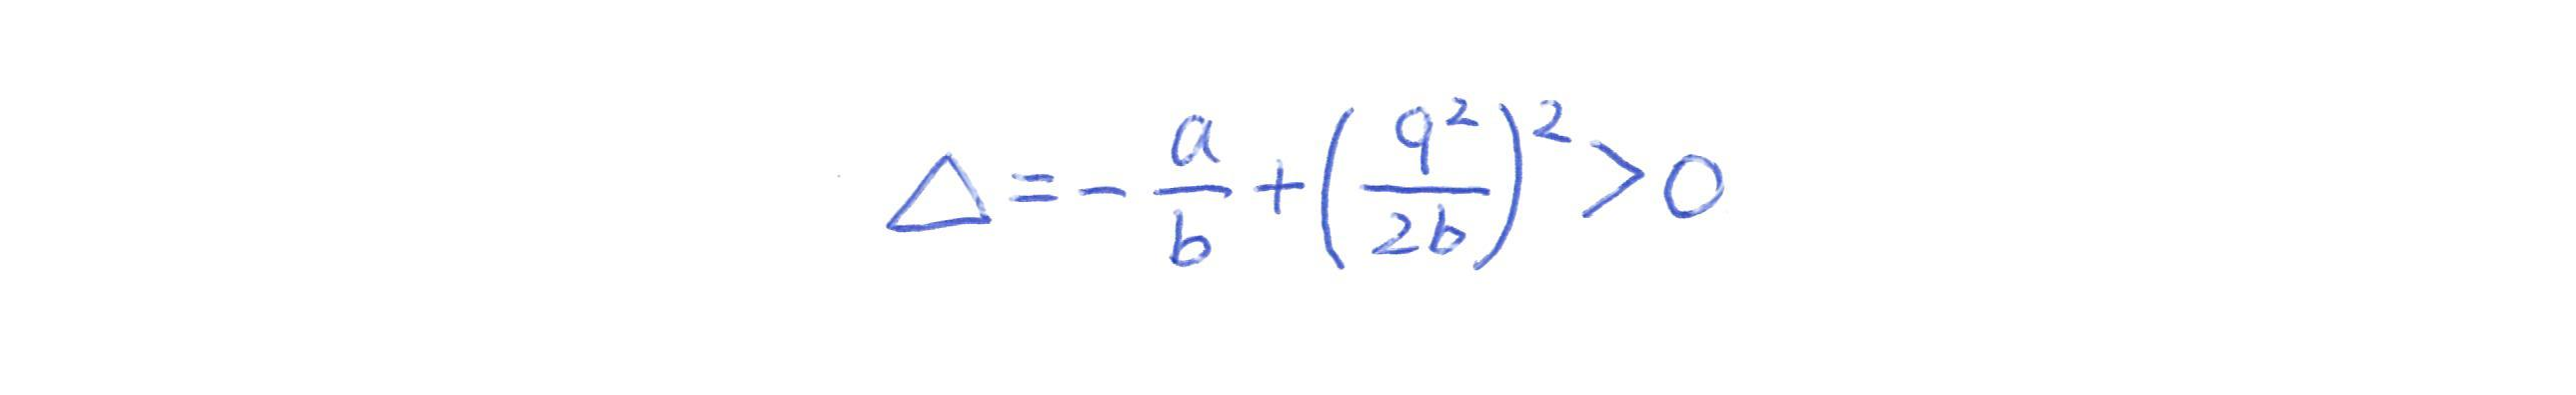 $\Delta = -\frac{a}{b} + \left(\frac{q^2}{2b}\right)^2 > 0$